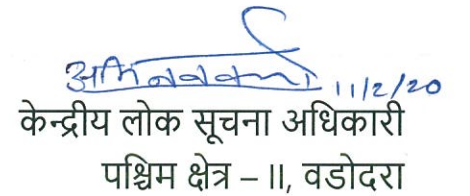 11/2/20
केन्द्रीय लोक सूचना अधिकारी
पश्चिम क्षेत्र – II, वडोदरा